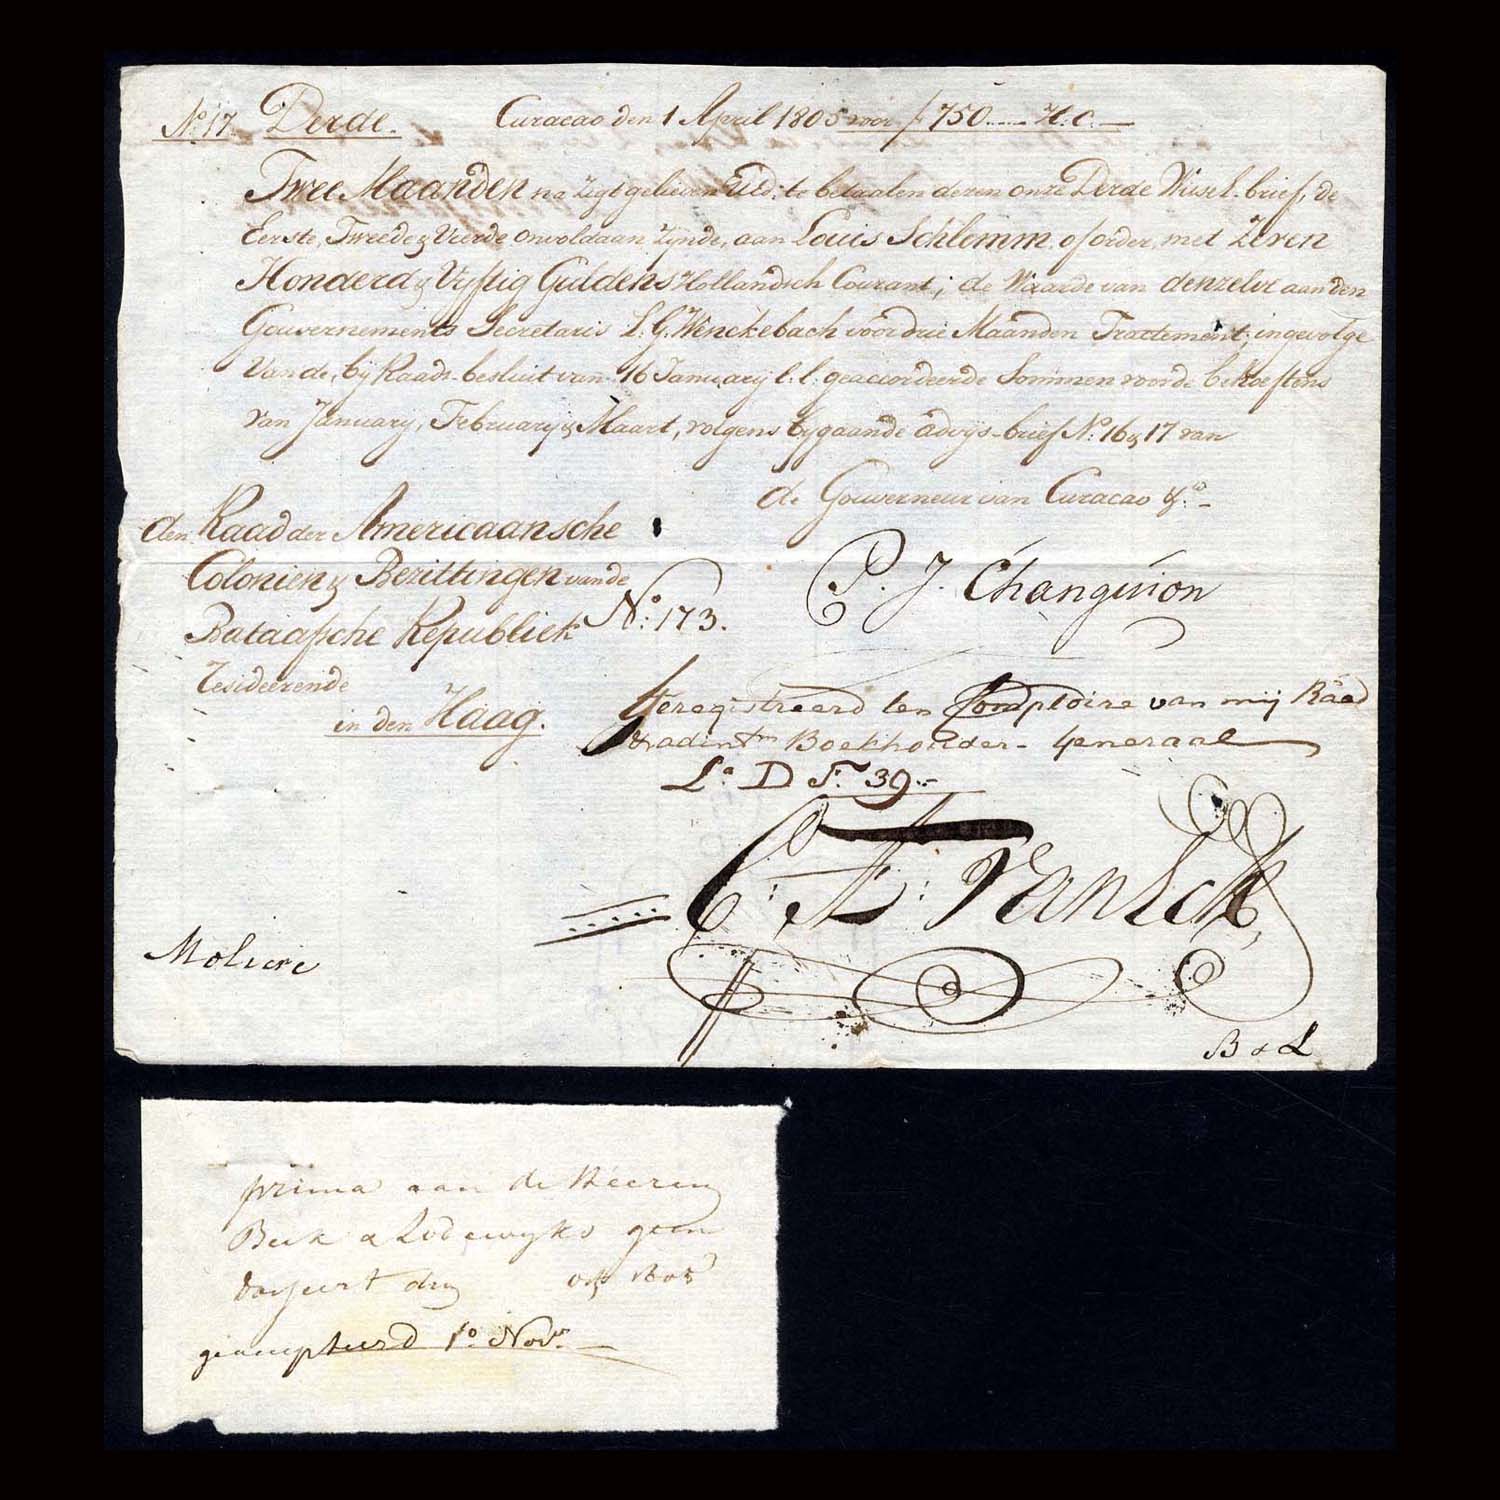 No 17 Derde. Curacao den 1 April 1805 voor f 750..... H:C.
Twee Maanden na Zigt gelieven UEd: te betaalen dezen onze Derde Wissel-brief, de
Eerste, Tweede & Vierde onvoldaan zynde, aan Louis Schlemm of order, met Zeven
Honderd & Vyftig Guldens Hollandsch Courant; de Waarde van denzelve aan den
Gouvernements Secretaris L. G. Wenckebach voor drie Maanden Tractement, ingevolge
Van de, bij Raads-besluit van 16 January l.l. geaccordeerde Sommen voor de behoeftens
van January, February & Maart, volgens bygaande advys-brief No. 16 & 17 van
de Gouverneur van Curacao &co
den Raad der Americaansche
Colonien & Bezittingen van de
Bataafsche Republiek
Resideerende
in den Haag.
No: 173.
P. J. Changuion
Geregistreerd ten Comptoire van mij Raad
& adintm Boekhouder-Generaal
La D Fo 39
C: F: van Eck
Moliere
B & L
prima aan de Heeren
Beek & Lodewyks geen
geaccepteerd 1o Nov.